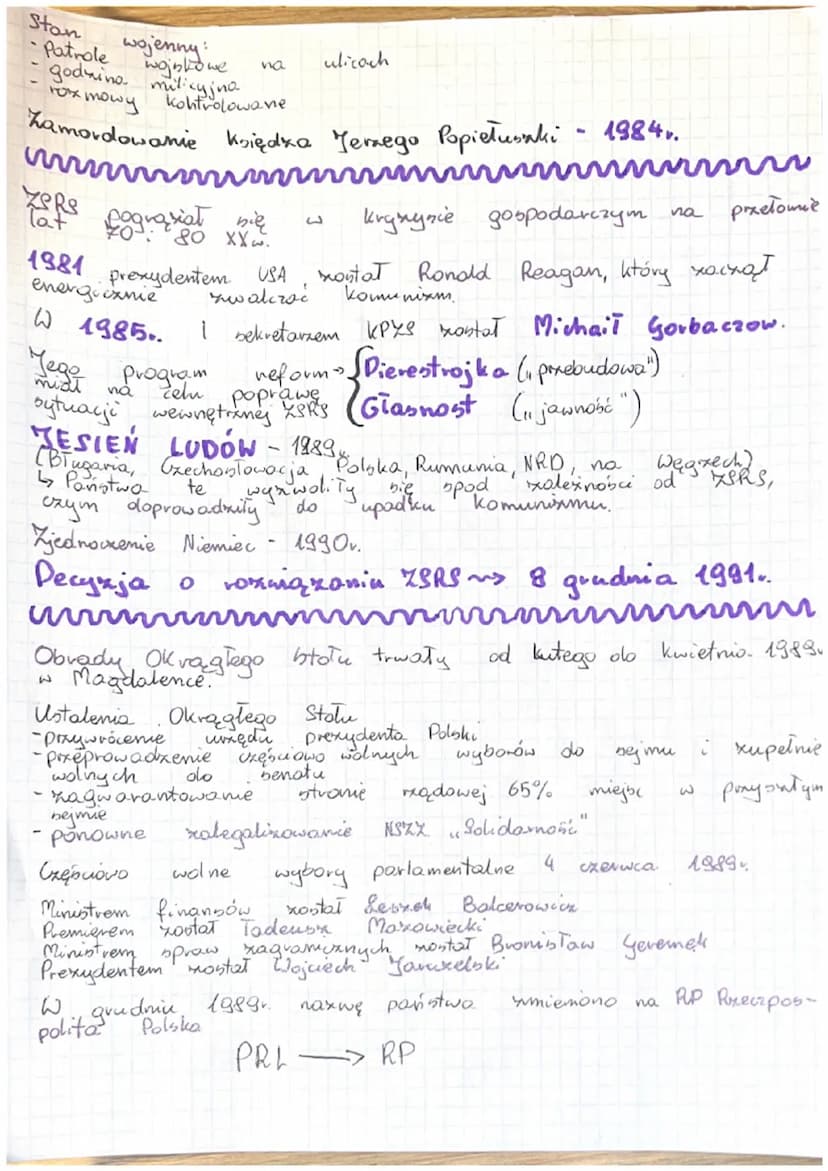 Stan wojenny:
- Patrole wojskowe na ulicach
- godzina milicyjna
- rozmowy kontrolowane
Zamordowanie księdza Jerzego Popiełuszki - 1984r.
ZSRS pogrążał się w kryzysie gospodarczym na przełomie
lat 70 i 80 XXw.
1981 prezydentem USA został Ronald Reagan, który zaczął
energicznie zwalczać komunizm.
W 1985r. I sekretarzem KPZS został Michaił Gorbaczow.
Jego program reform → Pierestrojka („przebudowa")
miał na celu poprawę
sytuacji wewnętrznej ZSRS Głasnost („jawność")
JESIEŃ LUDÓW - 1989r.
(Bługaria, Czechosłowacja, Polska, Rumunia, NRD, na Węgrzech)
↳ Państwa te wyzwoliły się spod zależności od ZSRS,
czym doprowadziły do upadku komunizmu.
Zjednoczenie Niemiec - 1990r.
Decyzja o rozwiązaniu ZSRS ~> 8 grudnia 1991r.
Obrady Okrągłego Stołu trwały od lutego do kwietnia 1989r
w Magdalence.
Ustalenia Okrągłego Stołu
- przywrócenie urzędu prezydenta Polski
- przeprowadzenie częściowo wolnych wyborów do sejmu i zupełnie
wolnych do senatu
- zagwarantowanie stronie rządowej 65% miejsc w przyszłym
sejmie
- ponowne zalegalizowanie NSZZ „Solidarność"
Częściowo wolne wybory parlamentalne 4 czerwca 1989r.
Ministrem finansów został Leszek Balcerowicz
Premierem został Tadeusz Mazowiecki
Ministrem spraw zagranicznych został Bronisław Geremek
Prezydentem został Wojciech Jaruzelski
W grudniu 1989r. nazwę państwa zmieniono na RP Rzeczpos-
polita Polska
PRL → RP